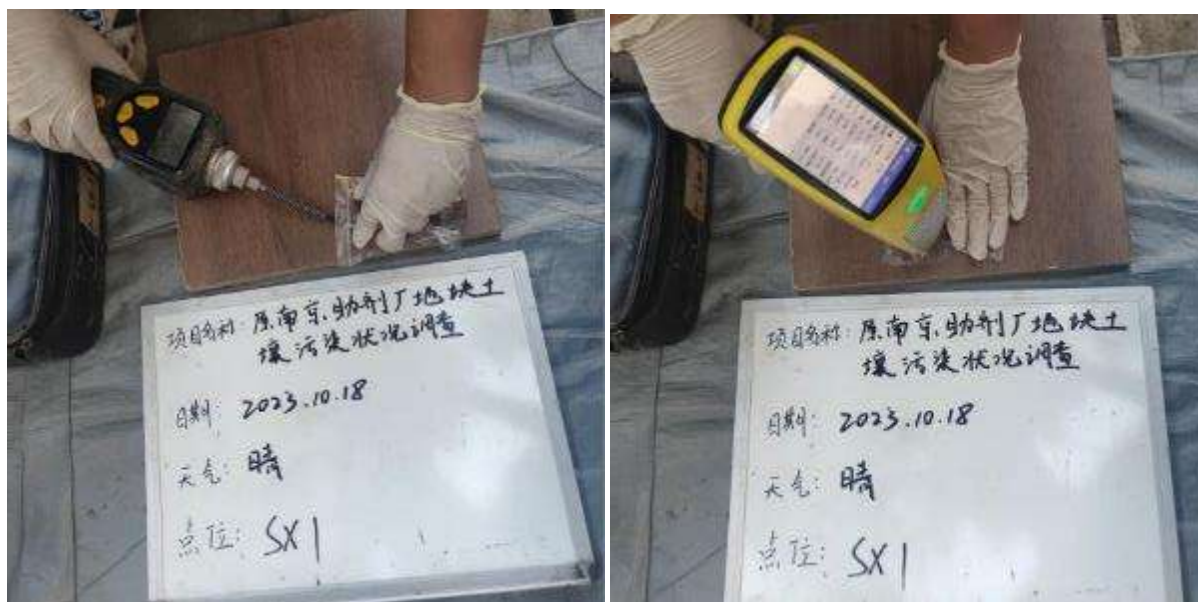 项目名称: 原南京助剂厂地块土
壤污染状况调查
日期: 2023.10.18
天气: 晴
点位: SX1
项目名称: 原南京助剂厂地块土
壤污染状况调查
日期: 2023.10.18
天气: 晴
点位: SX1